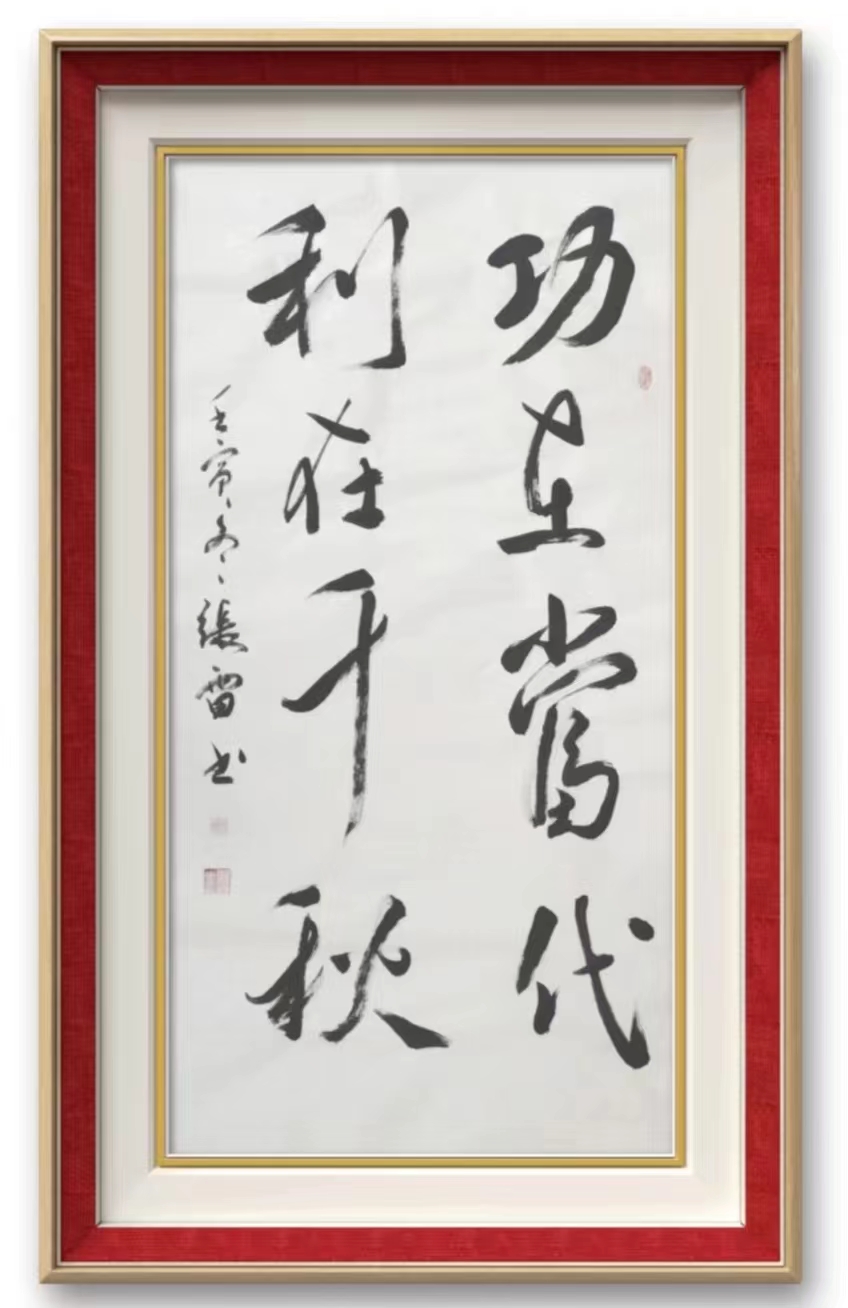 功在當代
利在千秋
壬寅冬張雷书